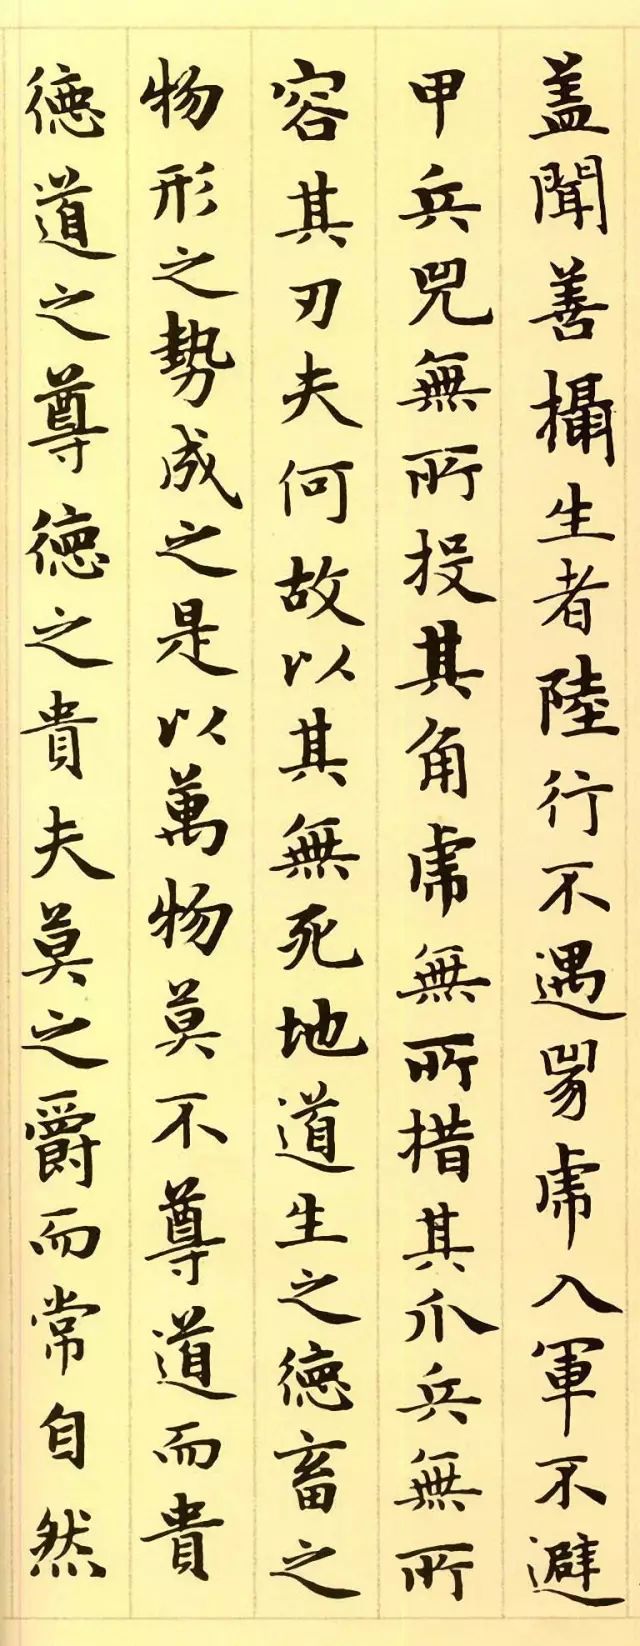 盖聞善攝生者陸行不遇兕虎入軍不避
甲兵兕無所投其角虎無所措其爪兵無所
容其刃夫何故以其無死地道生之德畜之
物形之勢成之是以萬物莫不尊道而貴
德道之尊德之貴夫莫之爵而常自然